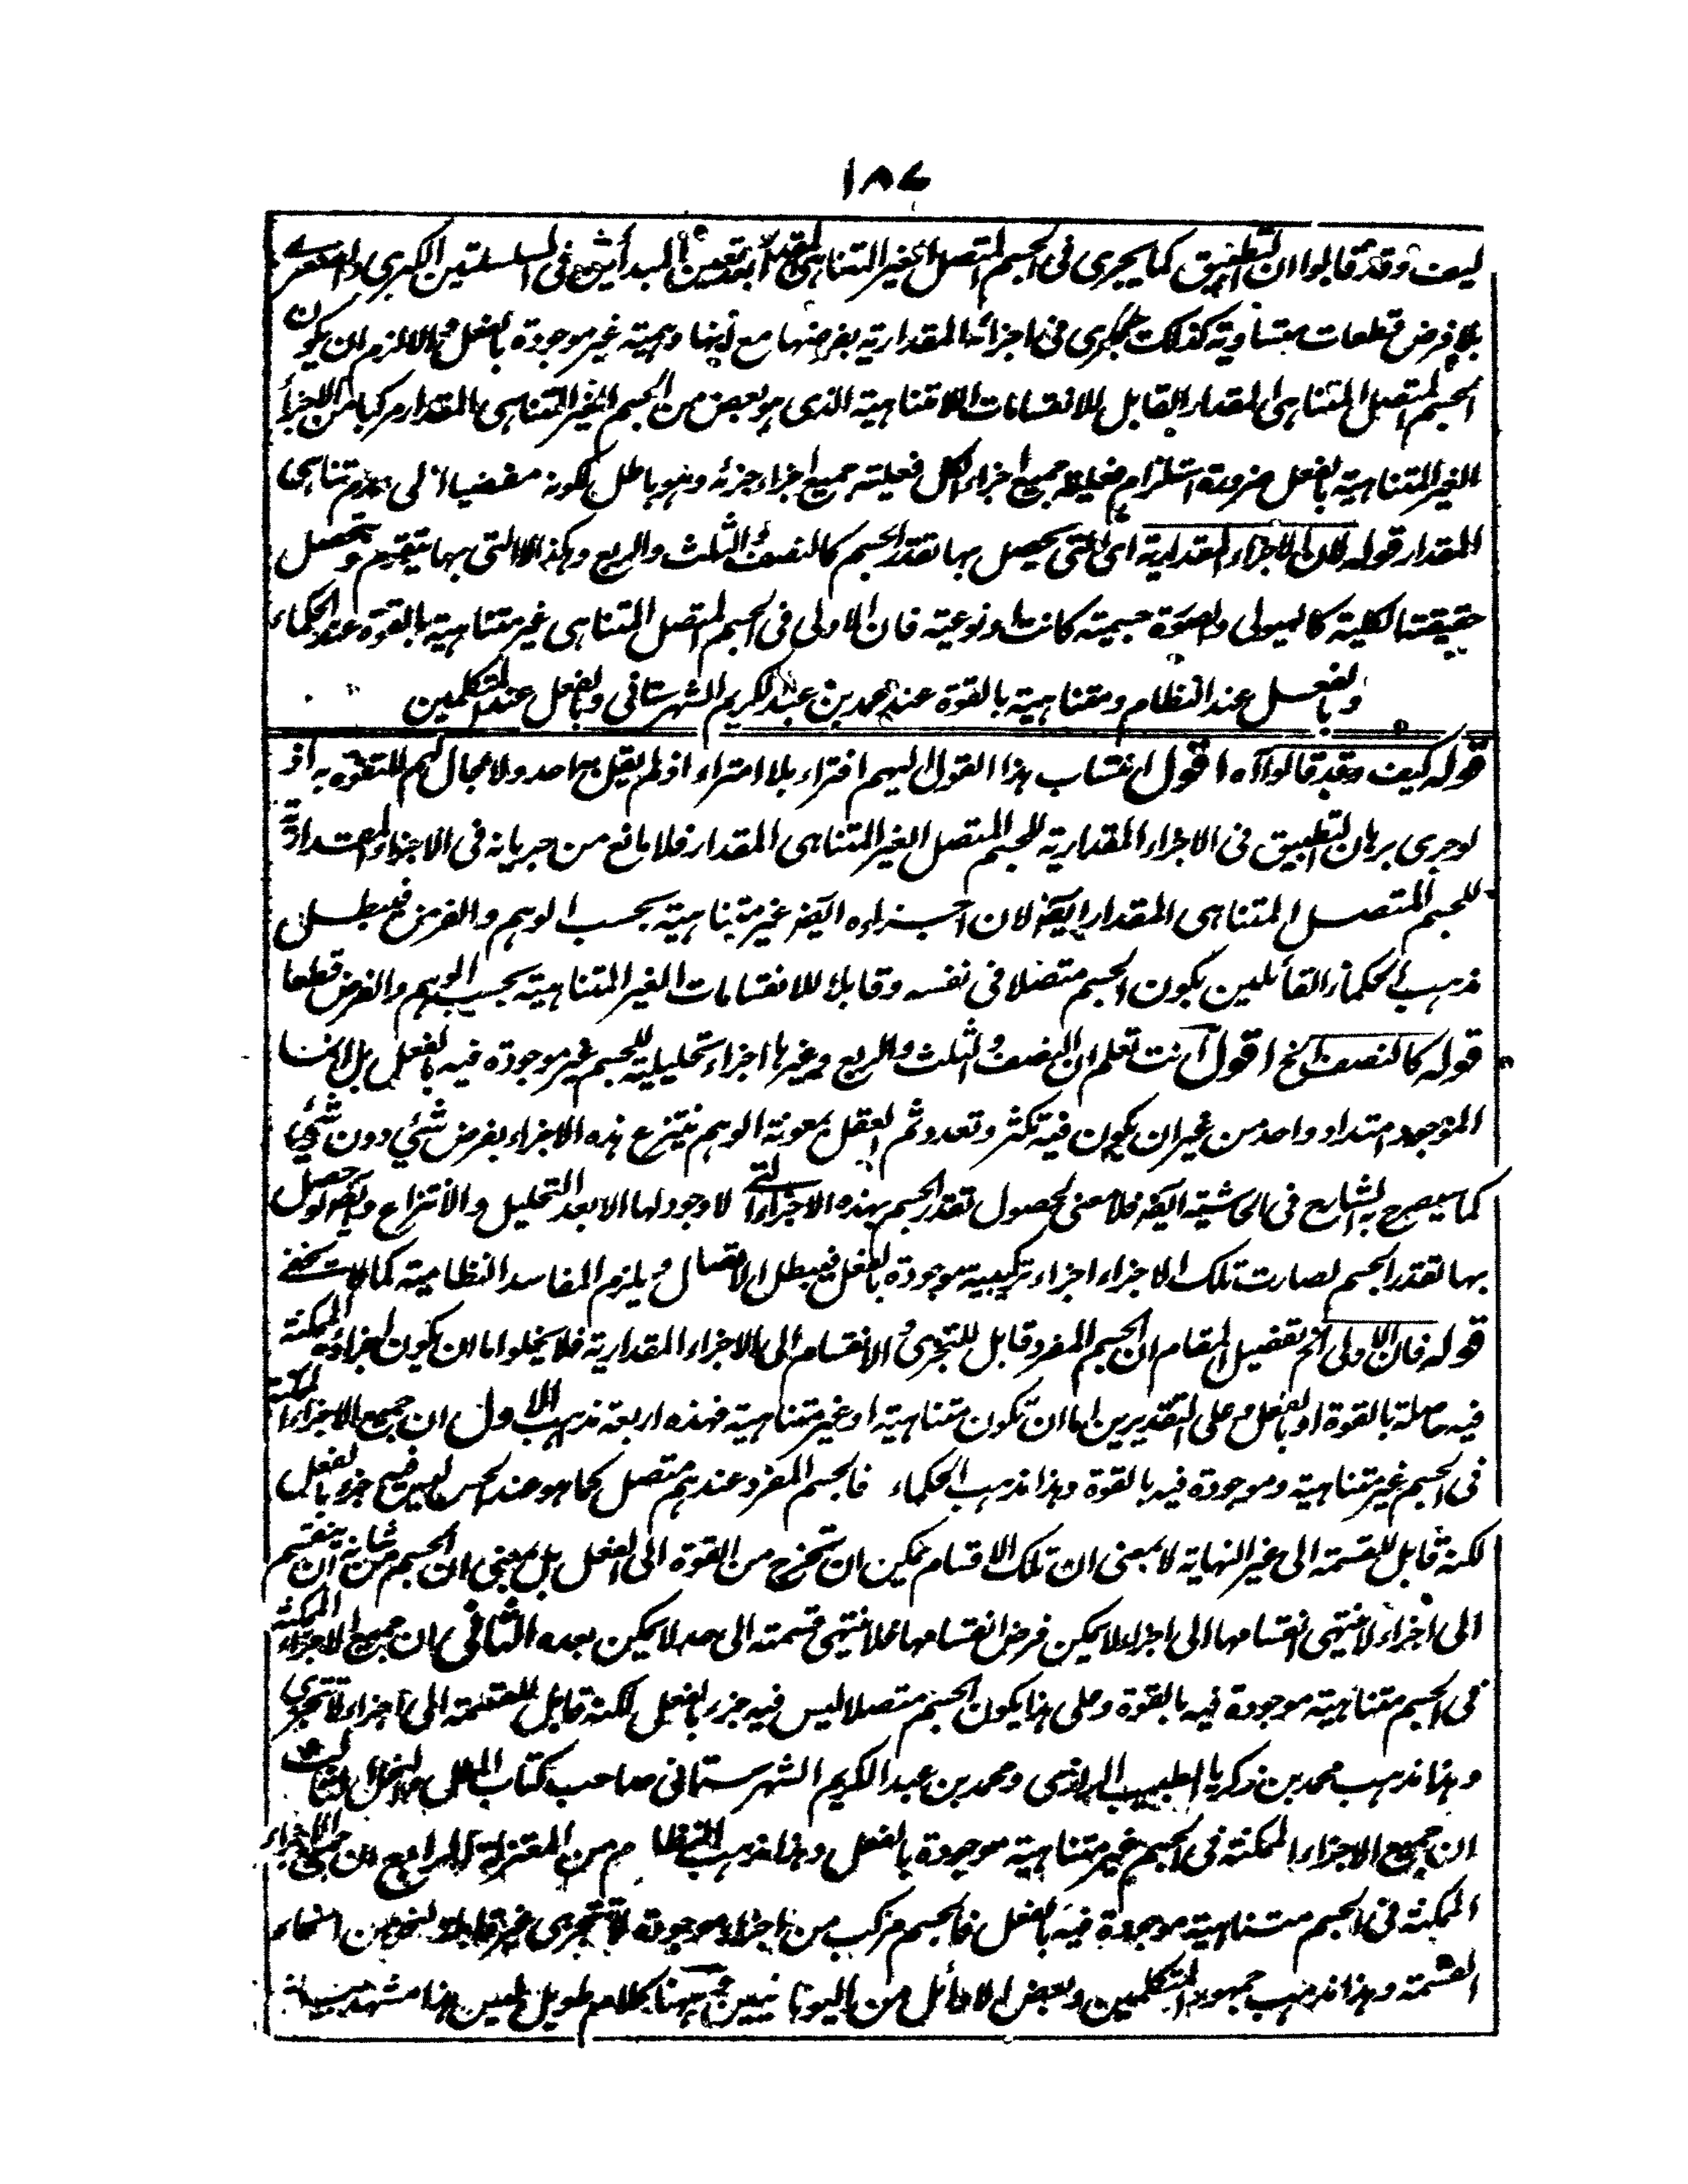 ١٨٧
كيف وقد قالوا ان التطبيق كما يجرى فى الجسم المتصل الغير المتناهى المقدار بعد تعيين المبدأ فى السلسلتين الكبرى والصغرى
بلا فرض قطعات متساوية كذلك يجرى فى اجزائه المقدارية بفرضها مع انها وهمية غير موجودة بالفعل والا لزم ان يكون
الجسم المتصل المتناهى المقدار القابل للانقسامات اللامتناهية الذى هو بعض من الجسم الغير المتناهى المقدار مركبا من الاجزاء
الغير المتناهية بالفعل ضرورة استلزام فعلية جميع اجزاء الكل فعلية جميع اجزاء جزئه وهو باطل لكونه مفضيا الى عدم تناهى
المقدار قوله فان الاجزاء المقدارية اى التى يحصل بها تقدر الجسم كالنصف والثلث والربع وهكذا لا التى بها يتقوم وتحصل
حقيقتها الكلية كالهيولى والصورة جسمية كانت او نوعية فان الاولى فى الجسم المتصل المتناهى غير متناهية بالقوة عند الحكماء
وبالفعل عند النظام ومتناهية بالقوة عند محمد بن عبد الكريم الشهرستانى وبالفعل عند المتكلمين
قوله كيف وقد قالوا آه اقول انتساب هذا القول اليهم افتراء بلا امتراء اذ لم يقل به احد ولا مجال لهم للتفوه به اذ
لو جرى برهان التطبيق فى الاجزاء المقدارية للجسم المتصل الغير المتناهى المقدار فلا مانع من جريانه فى الاجزاء المقدارية
للجسم المتصل المتناهى المقدار ايضا لان اجزاءه ايضا غير متناهية بحسب الوهم والفرض فيبطل
مذهب الحكماء القائلين بكون الجسم متصلا فى نفسه وقابلا للانقسامات الغير المتناهية بحسب الوهم والفرض قطعا
قوله كالنصف الخ اقول انت تعلم ان النصف والثلث والربع وغيرها اجزاء تحليلية للجسم غير موجودة فيه بالفعل بل انما
الموجود امتداد واحد من غير ان يكون فيه تكثر وتعدد ثم العقل بمعونة الوهم ينتزع هذه الاجزاء بفرض شئ دون شئ
كما سيصرح به الشارح فى الحاشية ايضا فلا معنى لحصول تقدر الجسم بهذه الاجزاء التى لا وجود لها الا بعد التحليل والانتزاع وايضا لو حصل
بها تقدر الجسم لصارت تلك الاجزاء اجزاء تركيبية موجودة بالفعل فيبطل الاتصال ويلزم المفاسد النظامية كما لا يخفى
قوله فان الاولى الخ تفصيل المقام ان الجسم المفرد قابل للتجزى والانقسام الى الاجزاء المقدارية فلا يخلو اما ان يكون اجزاؤه الممكنة
فيه حاصلة بالقوة او بالفعل وعلى التقديرين اما ان تكون متناهية او غير متناهية فهذه اربعة مذاهب الاول ان جميع الاجزاء الممكنة
فى الجسم غير متناهية وموجودة فيه بالقوة وهذا مذهب الحكماء فالجسم المفرد عندهم متصل كما هو عند الحس ليس فيه جزء بالفعل
لكنه قابل للقسمة الى غير النهاية لا بمعنى ان تلك الاقسام يمكن ان تخرج من القوة الى الفعل بل بمعنى ان الجسم من شانه ان ينقسم
الى اجزاء لا ينتهى انقسامها الى اجزاء لا يمكن فرض انقسامها فلا تنتهى قسمته الى حد لا يمكن بعده الثانى ان جميع الاجزاء الممكنة
فى الجسم متناهية موجودة فيه بالقوة وعلى هذا يكون الجسم متصلا ليس فيه جزء بالفعل لكنه قابل للقسمة الى اجزاء لا تتجزى
وهذا مذهب محمد بن زكريا الطبيب الرازى ومحمد بن عبد الكريم الشهرستانى صاحب كتاب الملل والنحل الثالث
ان جميع الاجزاء الممكنة فى الجسم غير متناهية موجودة بالفعل وهذا مذهب النظام من المعتزلة الرابع ان جميع الاجزاء
الممكنة فى الجسم متناهية موجودة فيه بالفعل فالجسم مركب من اجزاء موجودة لا تتجزى غير قابلة لنحو من انحاء
القسمة وهذا مذهب جمهور المتكلمين وبعض الاوائل من اليونانيين وههنا كلام طويل ليس هذا مشهد بيانه